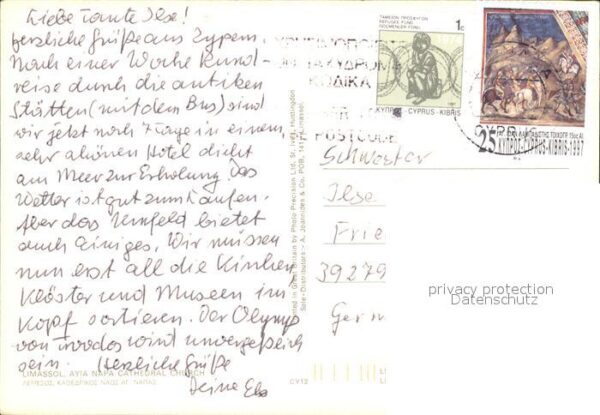 Liebe Tante Ilse!
herzliche Grüße aus Zypern.
Nach einer Woche Rund-
reise durch die antiken
Stätten (mit dem Bus) sind
wir jetzt noch 7 Tage in einem
sehr schönen Hotel dicht
am Meer zur Erholung. Das
Wetter ist gut zum Laufen.
Aber das Umfeld bietet
auch einiges. Wir müssen
nun erst all die Kirchen,
Klöster und Museen im
Kopf sortieren. Der Olymp
von Troodos wird unvergeßlich
sein. Herzliche Grüße
Deine
LIMASSOL, AYIA NAPA CATHEDRAL CHURCH
ΛΕΜΕΣΟΣ, ΚΑΘΕΔΡΙΚΟΣ ΝΑΟΣ ΑΓ. ΝΑΠΑΣ
CY12
Printed in Great Britain by Photo Precision Ltd., St. Ives, Huntingdon
Sole Distributors: A. Joannides & Co. POB. 141 Limassol.
ΤΑΜΕΙΟΝ ΠΡΟΣΦΥΓΩΝ
REFUGEE FUND
GÖÇMENLER FONU
1c
ΚΥΠΡΟΣ-CYPRUS-KIBRIS
ΤΑΧΥΔΡΟΜ
ΚΩΔΙΚΑ
POSTCODE
25
ΚΥΠΡΟΣ-CYPRUS-KIBRIS-1997
Schwester
Ilse
Frie
39279
Germ
privacy protection
Datenschutz